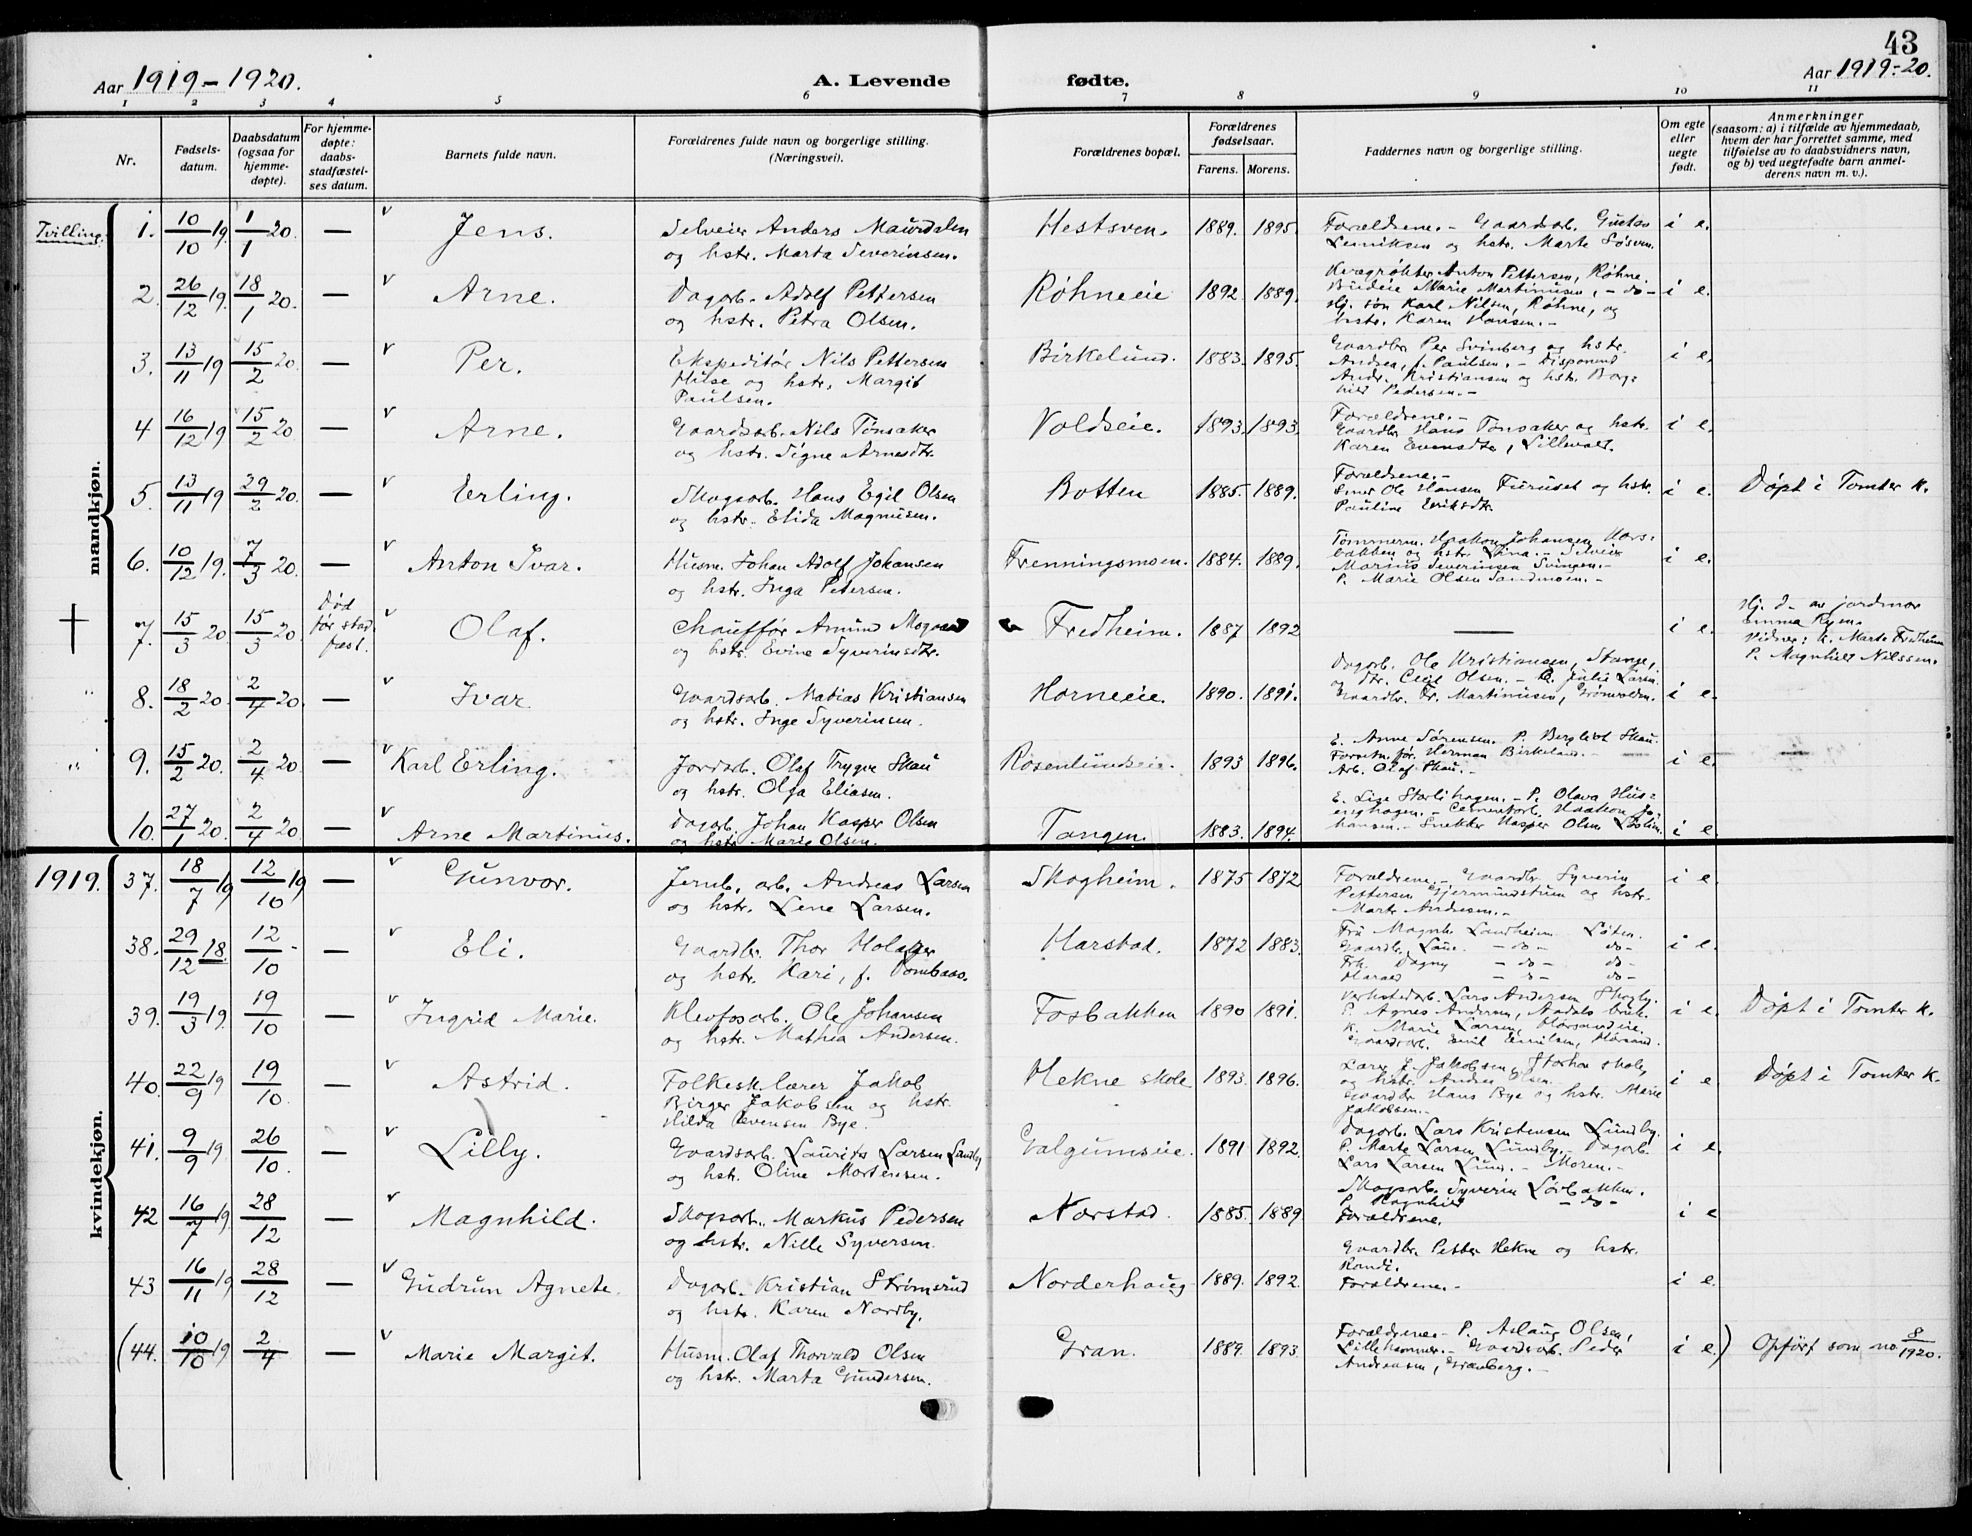 43
Aar 1919 – 1920.
A. Levende
fødte.
Aar 1919.-20.
1 2 3 4 5 6 7 8 9 10 11
Nr.
Fødsels-
datum.
Daabsdatum
(ogsaa for
hjemme-
døpte).
For hjemme-
døpte:
daabs-
stadfæstel-
ses datum.
Barnets fulde navn.
Forældrenes fulde navn og borgerlige stilling.
(Næringsvei).
Forældrenes bopæl.
Forældrenes
fødselsaar.
Farens. Morens.
Faddernes navn og borgerlige stilling.
Om egte
eller
uegte
født.
Anmerkninger
(saasom: a) i tilfælde av hjemmedaab,
hvem der har forrettet samme, med
tilføielse av to daabsvidners navn,
og b) ved uegtefødte barn anmel-
derens navn m. v.).
mandkjøn.
Tvilling. 1. 10/10 19. 1/1 20. — v Jens. Selveier Anders
og hstr. Marta Severinsen. Hestsven. 1889. 1895. Forældrene. – Gaardarb. Gustav
og hstr. Marte i e.
2. 26/12 19. 18/1 20. — v Arne. Dagarb. Adolf Pettersen
og hstr. Petra Olsen. Røhneeie 1892 1889. Kvægrøkter Anton Pettersen, Røhne,
Budeie Marie Martinusen, – do –
søn Karl Nilsen, Røhne, og
hstr. Karen Hansen. – i e.
3. 13/11 19 15/2 20. — v Per. Ekspeditør Nils Pettersen
og hstr. Margit
Paulsen. Birkelund. 1883. 1895. Gaardbr. Per Svinberg og hstr.
Andrea, f. Paulsen. – Disponent
Andr. Kristiansen og hstr. Borg-
hild Pedersen. – i e.
4 16/12 19 15/2 20 — v Arne. Gaardsarb. Nils Tønsaker
og hstr. Signe Arnesdtr. Voldseie. 1893. 1893. Forældrene. –
Gaardbr. Hans Tønsaker og hstr.
Karen Evensdtr, i e.
5. 13/11 19 29/2 20. — v Erling. Skogsarb. Hans Egil Olsen
og hstr. Elida Magnusen. Botten 1885. 1889. Forældrene. –
Ole Hansen Furuset og hstr.
Pauline Eriksdtr. i e. Døpt i Tomter k.
6. 10/12 19. 7/3 20. — v Anton Ivar. Husm. Johan Adolf Johansen
og hstr. Inga Petersen. Frenningsmoen. 1884. 1889. Tømmerm. Haakon Johansen
og hstr. – Selveier
Marius Severinsen Svingen. –
P. Marie Olsen Sandmoen. – i e.
7. 15/3 20 15/3 20 Død
før stad-
fæst. v Olaf. Chauffør Amund
og hstr. Evine Syverinsdtr. Fredheim. 1887 1892 — i e. Hj. d. av jordmor
Emma
Vidner: k. Marte Fredheim
P. Magnhild Nilssen.
" 8. 18/2 20. 2/4 20. — v Ivar Gaardsarb. Matias Kristiansen
og hstr. Inge Syverinsen. Horneeie. 1890. 1891. Dagarb. Ole Kristiansen, Stange,
og dtr. Olsen. – P. Julie Larsen.
Gaardbr. Fr. Martinusen, i e.
" 9. 15/2 20. 2/4 20 — v Karl Erling. Jordarb. Olaf Trygve Skau
og hstr. Olga Eliasen. Rosenlundseie. 1893 1896. E. Anne Sørensen. P. Bergliot Skau.
Herman Birkelund. –
Arb. Olaf Skau. – i e. —
10. 27/1 20. 2/4 20 — v Arne Martinus. Dagarb. Johan Kasper Olsen
og hstr. Marie Olsen. Tangen. 1883. 1894. E. Lise – P. Olava Hus-
enghagen. – Cementarb. Haakon Jo-
hansen. – Snekker Kasper Olsen i e.
kvindekjøn.
1919. 37. 18/7 19 12/10 19 — v Gunvor. Jernb. arb. Andreas Larsen
og hstr. Lene Larsen. Skogheim. 1875 1872 Forældrene. – Gaardbr. Syverin
Pettersen Gjermundstun og hstr.
Marte Andresen. – i e.
38. 29/12 18. 12/10 – — v Eli. Gaardbr. Thor
og hstr. Kari, f. Harstad. 1872 1883. Fru Magnh. Landheim Løten.
Gaardbr. – do – do –
Frk. Dagny – do – do –
Harald – do – do – i e.
39. 19/3 19. 19/10 — v Ingrid Marie. Klevfosarb. Ole Johansen
og hstr. Mathea Andersen. Fosbakken 1890 1891. Verkstedarb. Lars Andersen
P. Agnes Andersen, Aadals bruk.
k. Marie Larsen,
Gaardsarb. Emil Emilsen, i e. Døpt i Tomter k.
40. 22/9 19 19/10. — v Astrid. Folkesk. lærer Jakob
Birger Jakobsen og hstr.
Hilda Evensen Bye. Hekne skole 1893. 1896. Lærer J. Jakobsen, Storhov skole,
og hstr. Andrea Olsen.
Gaardbr Hans Bye og hstr. Marie
Jakobsen. – i e. Døpt i Tomter k.
41. 9/9 19. 26/10. — v Lilly. Gaardsarb. Laurits Larsen Lundby
og hstr. Oline Mortensen. Galgumseie. 1891 1892. Dagarb. Lars Kristensen Lundby.
P. Marte Larsen Lundby. – Dagarb.
Lars Larsen Lund. – Moren. – i e.
42 16/7 19. 28/12 — v Magnhild. Skogsarb. Markus Pedersen
og hstr. Nille Syversen. Norstad. 1885. 1889 Skogsarb. Syverin
P. Magnhild – do –
Forældrene. i e
43 16/11 19 28/12 — v Gudrun Agnete. Dagarb. Kristian Strømsrud
og hstr. Karen Nordby. Norderhaug 1889. 1892. Gaardbr. Petter Hekne og hstr.
Randi.
Forældrene. – i e.
(44. 10/10 19 2/4 — v Marie Margit. Husm. Olaf Thorvald Olsen
og hstr. Marta Gundersen. Gran. 1889. 1893. Forældrene. – P. Aslaug Olsen,
Lillehammer. – Gaardsarb. Peder
Andreasen, Granberg. – i e.) Opført som no 8/1920.